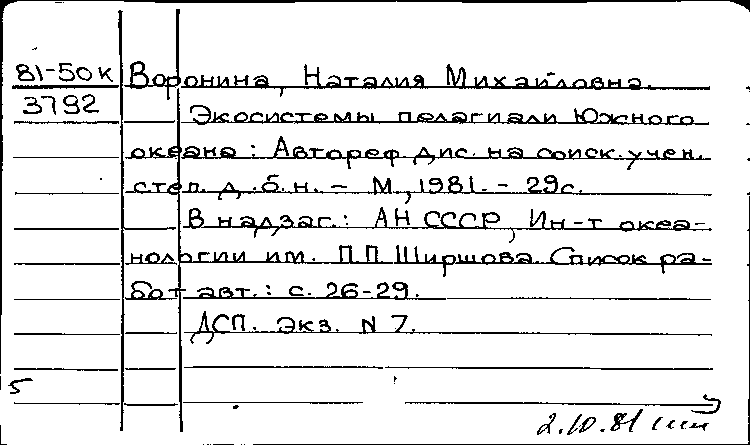 81-50к Воронина, Наталия Михайловна.
3792 Экосистемы пелагиали Южного
океана: Автореф. дис. на соиск. учен.
степ. д.б.н. - М., 1981. - 29с.
В надзаг.: АН СССР, Ин-т океа-
нологии им. П.П. Ширшова. Список ра-
бот авт.: с. 26-29.
ДСП. Экз. N 7.
5
2.10.81